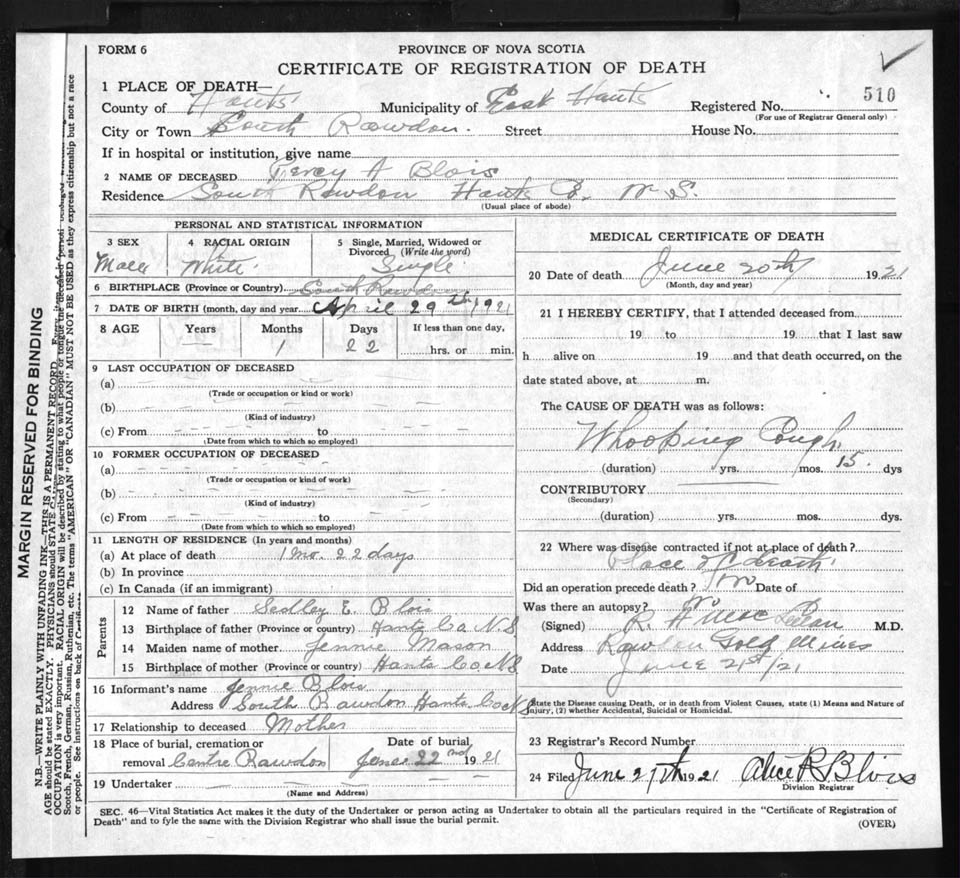 FORM 6
PROVINCE OF NOVA SCOTIA
CERTIFICATE OF REGISTRATION OF DEATH
510
1 PLACE OF DEATH—
County of Hants Municipality of East Hants Registered No.
(For use of Registrar General only)
City or Town South Rawdon. Street House No.
If in hospital or institution, give name
2 NAME OF DECEASED Percy A Blois
Residence South Rawdon Hants Co. N S.
(Usual place of abode)
PERSONAL AND STATISTICAL INFORMATION
3 SEX
Male
4 RACIAL ORIGIN
White
5 Single, Married, Widowed or
Divorced (Write the word)
Single
6 BIRTHPLACE (Province or Country) South Rawd
7 DATE OF BIRTH (month, day and year April 29th 1921
8 AGE Years Months Days If less than one day,
— 1 22 hrs. or min.
9 LAST OCCUPATION OF DECEASED
(a)
(Trade or occupation or kind or work)
(b)
(Kind of industry)
(c) From to
(Date from which to which so employed)
10 FORMER OCCUPATION OF DECEASED
(a)
(Trade or occupation or kind of work)
(b)
(Kind of industry)
(c) From to
(Date from which to which so employed)
11 LENGTH OF RESIDENCE (In years and months)
(a) At place of death 1 mo. 22 days
(b) In province
(c) In Canada (if an immigrant)
Parents
12 Name of father Sedley E. Blois
13 Birthplace of father (Province or country) Hants Co N S
14 Maiden name of mother Jennie Mason
15 Birthplace of mother (Province or country) Hants Co N S
16 Informant's name Jennie Blois
Address South Rawdon Hants Co N S
17 Relationship to deceased Mother
18 Place of burial, cremation or
removal Centre Rawdon
Date of burial
June 22nd 1921
19 Undertaker
(Name and Address)
MEDICAL CERTIFICATE OF DEATH
20 Date of death June 20th 1921
(Month, day and year)
21 I HEREBY CERTIFY, that I attended deceased from
19 to 19 that I last saw
h alive on 19 and that death occurred, on the
date stated above, at m.
The CAUSE OF DEATH was as follows:
Whooping Cough
(duration) yrs. mos. 15. dys
CONTRIBUTORY
(Secondary)
(duration) yrs. mos. dys.
22 Where was disease contracted if not at place of death?
Place of death
Did an operation precede death? no Date of
Was there an autopsy?
(Signed) R. M.D.
Address Rawdon Gold Mines
Date June 21st/21
State the Disease causing Death, or in death from Violent Causes, state (1) Means and Nature of
Injury, (2) whether Accidental, Suicidal or Homicidal.
23 Registrar's Record Number
24 Filed June 27th 1921 Alice R Blois
Division Registrar
SEC. 46—Vital Statistics Act makes it the duty of the Undertaker or person acting as Undertaker to obtain all the particulars required in the "Certificate of Registration of
Death" and to fyle the same with the Division Registrar who shall issue the burial permit.
(OVER)
MARGIN RESERVED FOR BINDING
N.B.—WRITE PLAINLY WITH UNFADING INK—THIS IS A PERMANENT RECORD.
AGE should be stated EXACTLY. PHYSICIANS should STATE
OCCUPATION is very important. RACIAL ORIGIN will be described by stating to what people or tongue the deceased person
Scotch, French, German, Russian, Ruthenian, etc. The terms "AMERICAN" OR "CANADIAN" MUST NOT BE USED as they express citizenship but not a race
or people. See instructions on back of Certificate.